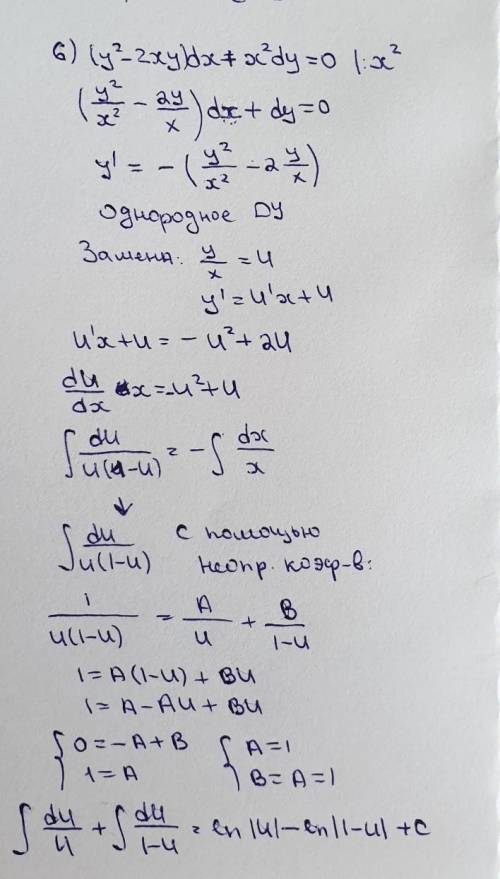 6) (y² - 2xy)dx + x²dy = 0 |:x²
(y²/x² - 2y/x) dx + dy = 0
y' = - (y²/x² - 2 y/x)
Однородное ДУ
Замена: y/x = u
y' = u'x + u
u'x + u = - u² + 2u
du/dx x = -u² + u
∫ du/u(1-u) = - ∫ dx/x
↓
∫ du/u(1-u) с помощью
неопр. коэф-в:
1/u(1-u) = A/u + B/1-u
1 = A(1-u) + Bu
1 = A - Au + Bu
{ 0 = -A + B { A = 1
1 = A B = A = 1
∫ du/u + ∫ du/1-u = ln|u| - ln|1-u| + c